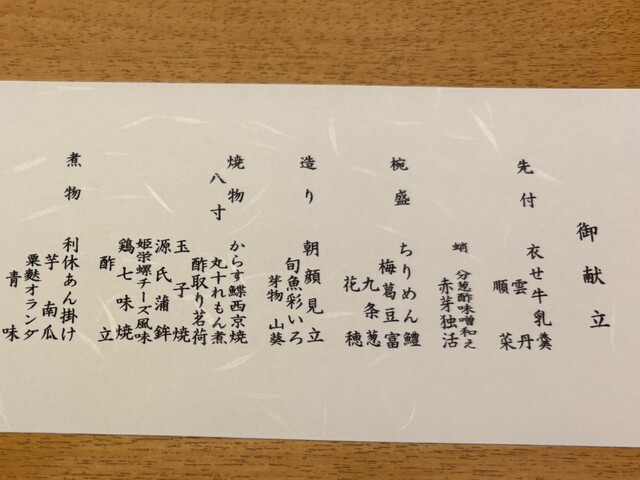 御献立
先付
衣せ牛乳羹
雲丹
順菜
蛸 分葱酢味噌和え
赤芽独活
椀盛
ちりめん鱧
梅葛豆富
九条葱
花穂
造り
朝顔見立
旬魚彩いろ
芽物 山葵
焼物
八寸
からす鰈西京焼
丸十れもん煮
酢取り茗荷
玉子焼
源氏蒲鉾
姫栄螺チーズ風味
鶏七味焼
酢立
煮物
利休あん掛け
芋 南瓜
粟麩オランダ
青味